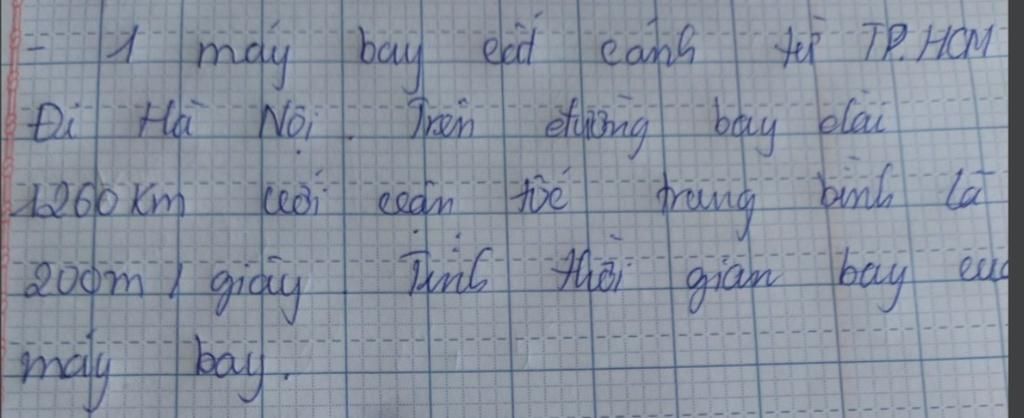 - 1 máy bay cất cánh từ TP.HCM
Đi Hà Nội. Trên đường bay dài
1260 km với vận tốc trung bình là
200m / giây Tính thời gian bay của
máy bay.